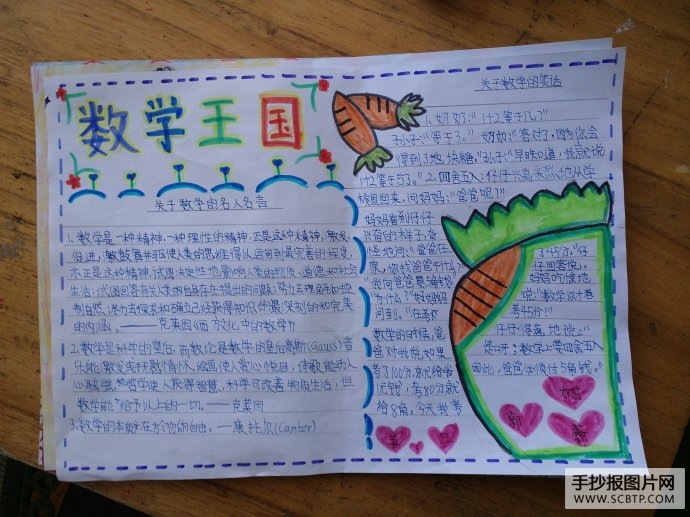 数学王国
关于数学的名人名言
1.数学是一种精神,一种理性的精神,正是这种精神,激发,
促进,鼓舞并驱使人类的思维得以运用到最完善的程度,
亦正是这种精神,试图决定性地影响人类的物质,道德和社会
生活;试图回答有关人类自身存在提出的问题;努力去理解和控
制自然;尽力去探求和确立已经获得知识的最深刻的和完美
的内涵。——克莱因《西方文化中的数学》
2.数学是科学的皇后,而数论是数学的皇后高斯(Gauss)音
乐能激发或抚慰情怀,绘画使人赏心悦目,诗歌能动人
心弦,哲学使人获得智慧,科学可改善物质生活,但
数学能给予以上的一切。——克莱因
3.数学的本质在于它的自由。——康托尔(Cantor)
关于数学的笑话
1.奶奶:"1+2等于几?"
孙子:"等于3。"奶奶:"答对了,因为你会
得到3地块糖。"孙子:"早知道,我就说
1+2等于5了。"2.四舍五入:仔仔兴高采烈地从学
校里回来,问妈妈:"爸爸呢?"
妈妈看到仔仔
兴奋的样子,奇
怪地问:"爸爸在
家,你找爸爸干什么?"
"我向爸爸要
为什么?"妈妈
问到。"在考
数学的时候,爸
爸对我说,如果
考了100分,就给
1元钱,考80分就
给8角。今天我考
了45分。"仔
仔回答说。
妈妈吃惊地
说:"数学你才
考45分!"
仔仔得意地说:"
是呀!数学上要四舍五入
因此,爸爸必须付5角钱。"
手抄报图片网
WWW.SCBTP.COM